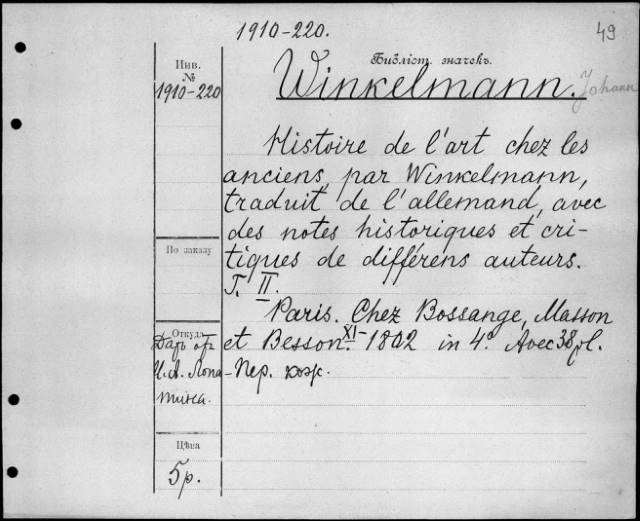 1910-220.
49
Инв.
№
1910-220
Библіот. значекъ.
Winkelmann. Johann
Histoire de l'art chez les
anciens, par Winkelmann,
traduit de l'allemand, avec
des notes historiques et cri-
tiques de différens auteurs.
T. II.
По заказу
Paris. Chez Bossange, Masson
Откуда
Даръ отъ
et Besson. XI-1802 in 4° Avec 38 pl.
И.А. Лопа-
тина.
Пер. кож.
Цѣна
5р.